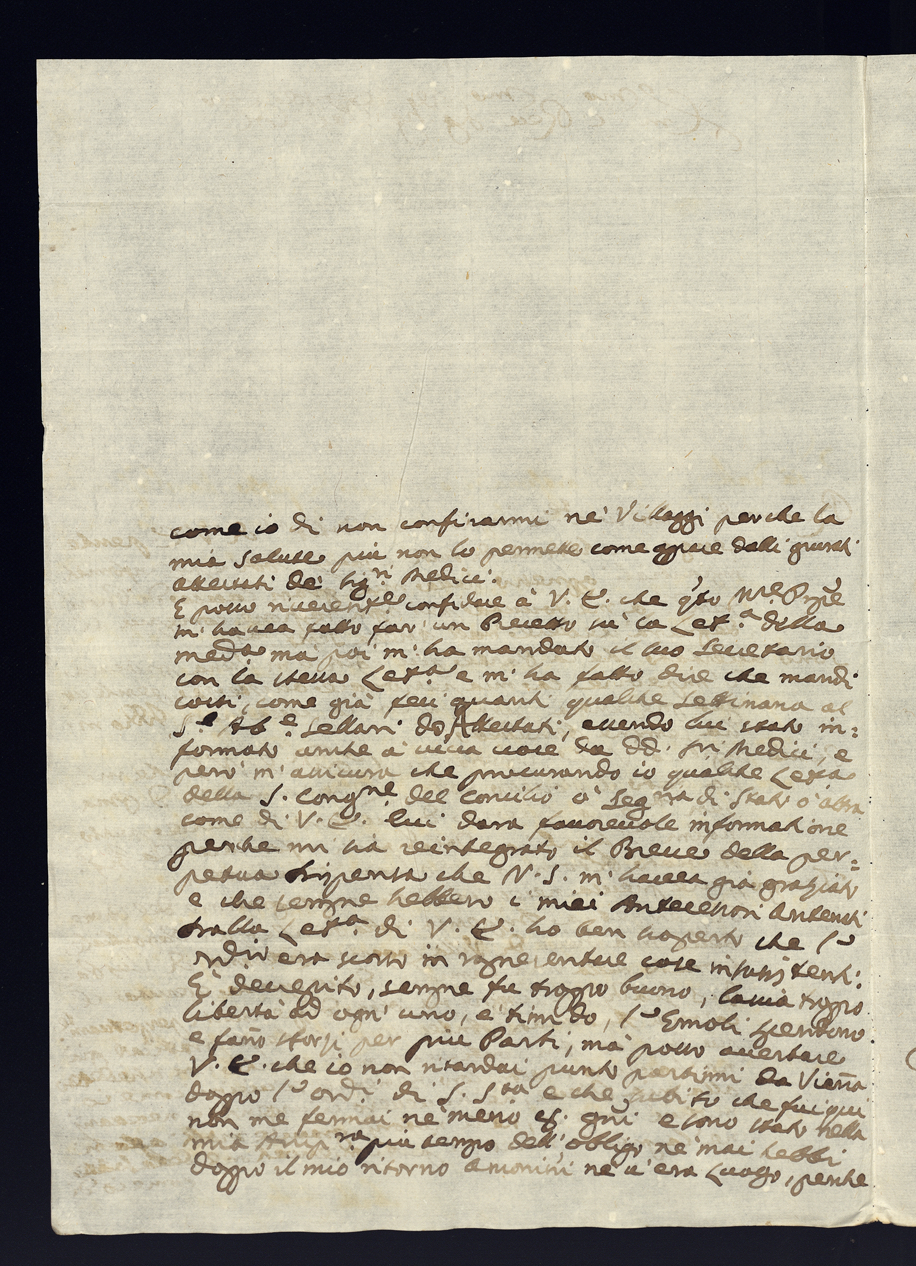 come io di non confirarmi ne' Villaggi perche la
mia salute più non lo permette come appare dalli giurati
attestati de' sig.ri Medici.
E posso riverentem.te confidare à V. E. che q.to
m' havea fatto far' un Precetto sù la Lett.a della
med.a ma poi m' ha mandato il suo secretario
con la stessa Lett.a e m' ha fatto dire che mandi
costì, come già feci quanti qualche settimana al
S.r Ab.e Sellari do Attestati, essendo lui stato in=
formato anche à viva voce da dd. SS.ri Medici, e
però m' assicura che procurando io qualche Lett.a
della S. Cong.ne del Concilio ò Seg.ria di Stato ò altra
come di V. E. lui darà favorevole informatione
perche mi sia reintegrato il Breve della per=
petua dispensa che N. S. m' haveva già gratiato
e che sempre hebbero i miei Antecessori Antenati
dalla Lett.a di V. E. ho ben scoperto che l'
ord.rio era scorso in rappresentare cose insussistenti.
È decrepito, sempre fu troppo buono, lascia troppo
libertà ad ogn' uno, è timido, l' Emoli
e fan̄o sforzi per più Parti, mà posso accertare
V. E. che io non ritardai punto partirmi da Vien̄a
doppo l' ord.i di S. S.tà e che subito che fui qui
non me fermai ne meno 15. g.ni e sono stato nella
mia più tempo dell' obligo ne mai hebbi
doppo il mio ritorno amonit.ni ne v' era Luogo, perche